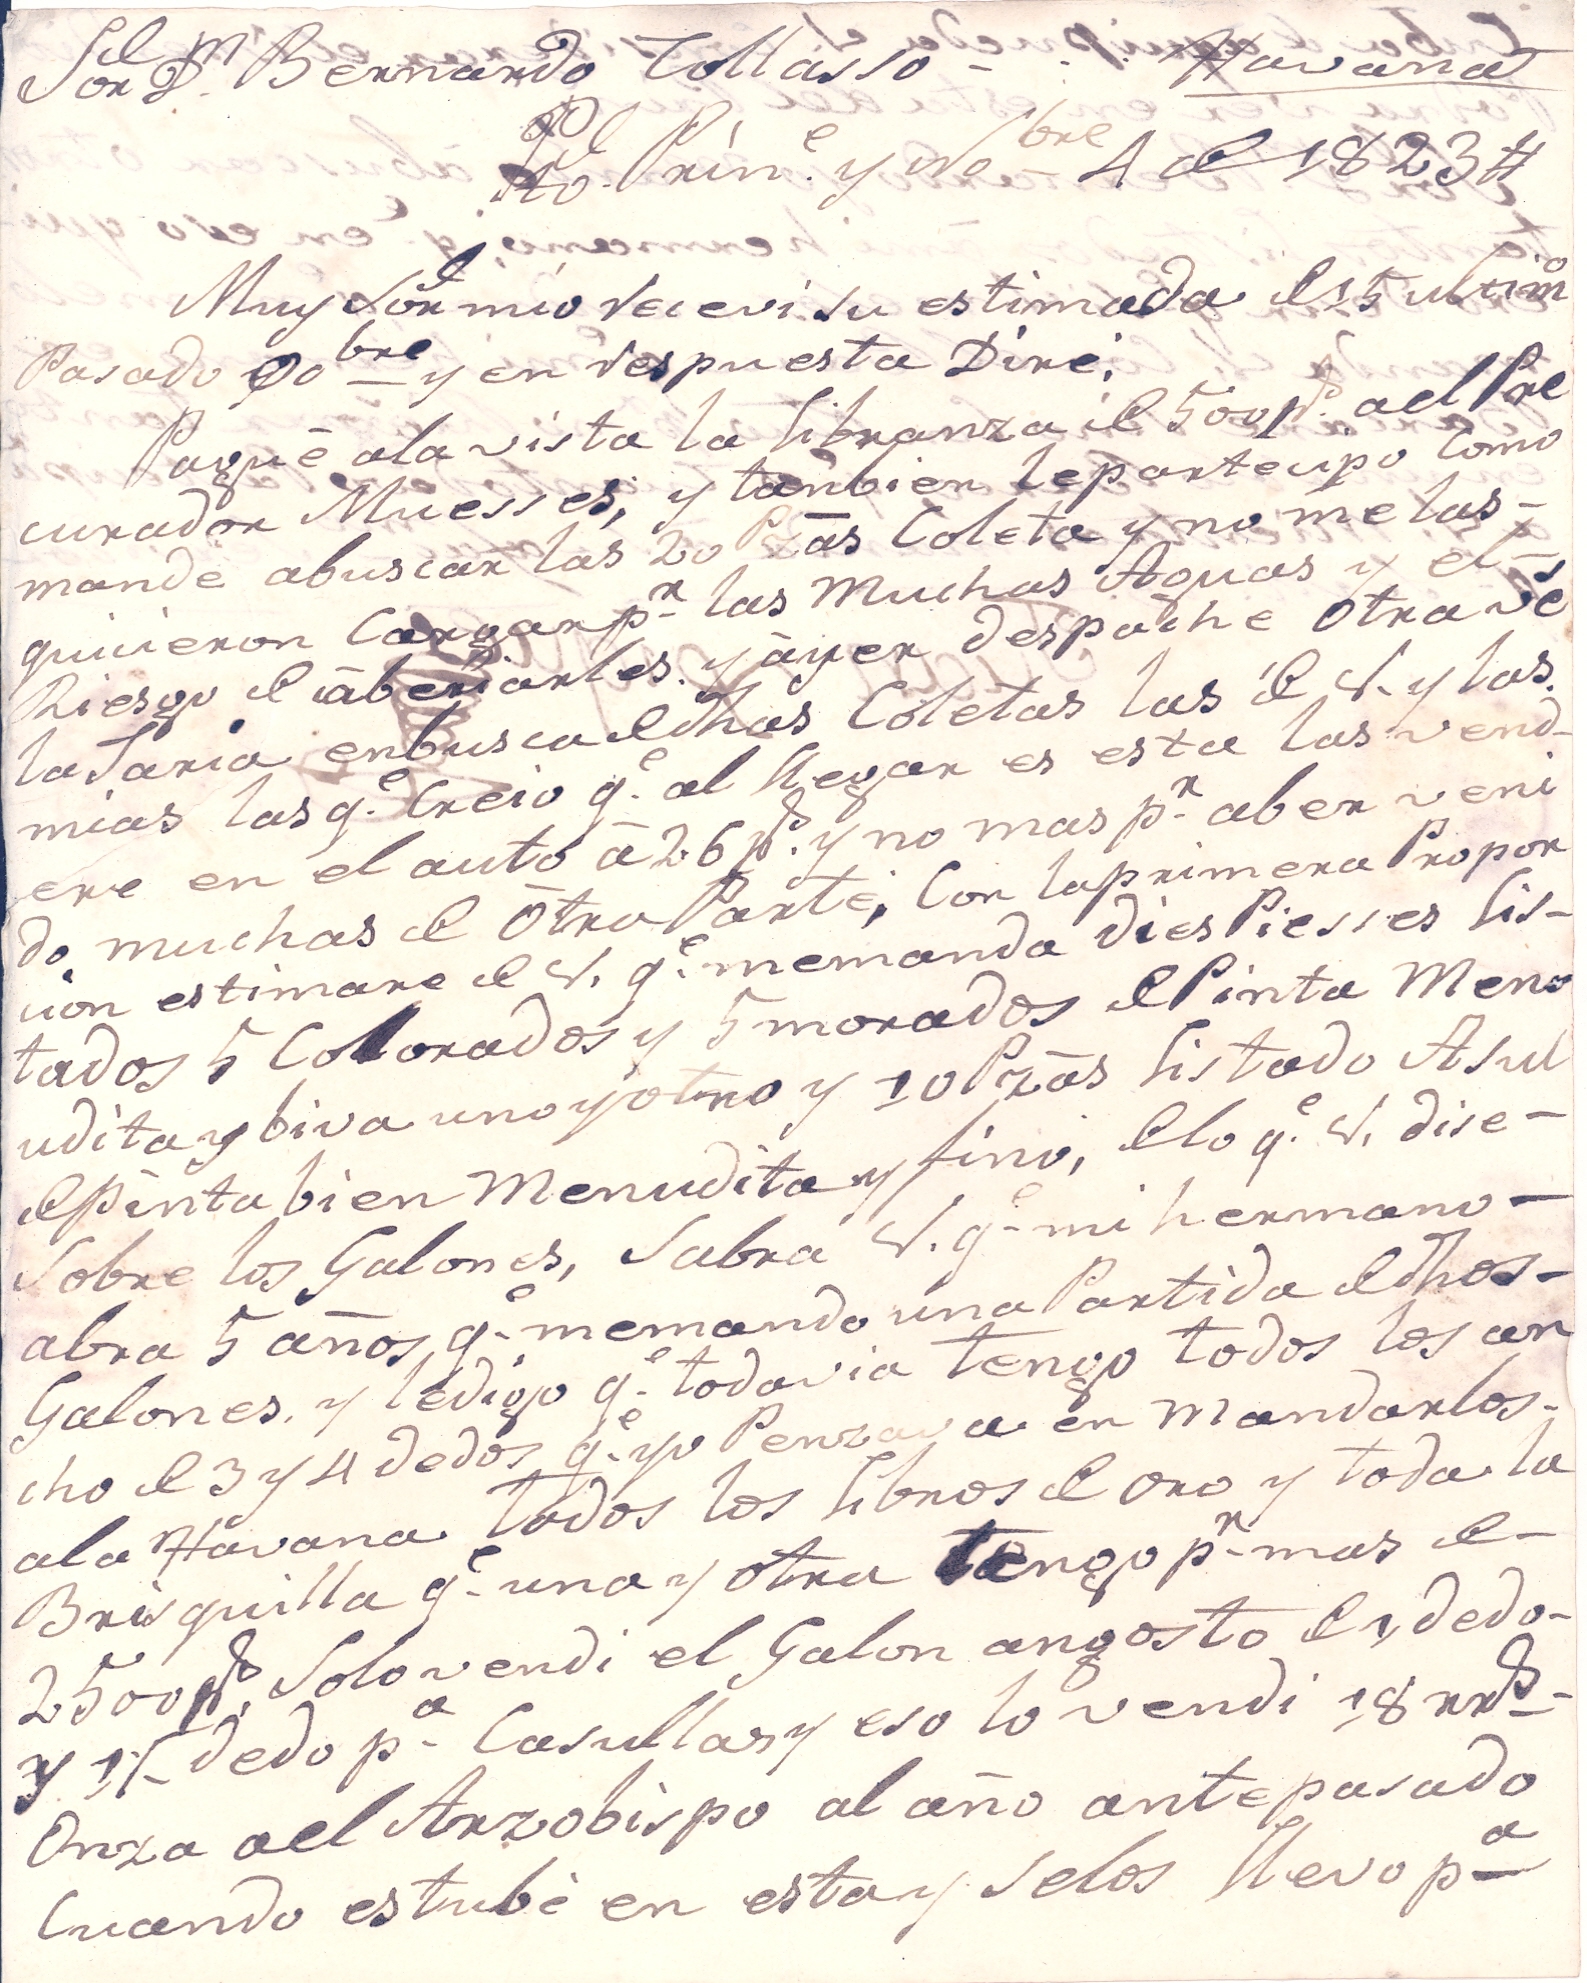 Sor Dn Bernardo Tollasso - - - Havana
Pto Prine. y Nobre 4 de 1823 #
Muy Sor mio Recevi su estimada de 15 ultimo
Pasado 90bre y en Respuesta Diré;
Pagué ala vista la libranza de 500 ps. ael Pro
curador Muesses; y tanbien le partecipo Como
mandé abuscar las 20 Pzãs Coleta y no me las -
quicieron Cargar pr las Muchas Aguas y el -
Riesgo de ãberiarles. y ãyer despache otra vés
la Taria enbusca de dhas Coletas las de V. y las
mias las qe. Creio qe. al llegar es esta las vend-
ere en el auto ã 26 ps. y no mas pr aber veni
do muchas de õtra Parte; Con la primera Propor
cion estimare de V. qe. memanda dies Piesses lis-
tados 5 Colorados y 5 morados de Pinta Men
udita y biva uno y otro y 10 Pzãs listado Asul
de Pinta bien Menudita y fino, de lo qe. V. dise -
Sobre los Galones, Sabra V. qe. mi hermano -
abra 5 años qe. memando una Partida de dhos -
Galones. y le digo qe. todavia tengo todos los an
cho de 3 y 4 dedos qe. yo Penzava en Mandarlos -
ala Havana todos los libros de oro y toda la
Brisquilla qe. una y otra tengo pr mas de -
2500 ps. Solo vendi el Galon angosto de 1 dedo -
y 1½ dedo pa Casullas y eso lo vendi 18 rrs -
Onza ael Arzobispo al año antepasado
Cuando estubé en esta y selos llevo pa